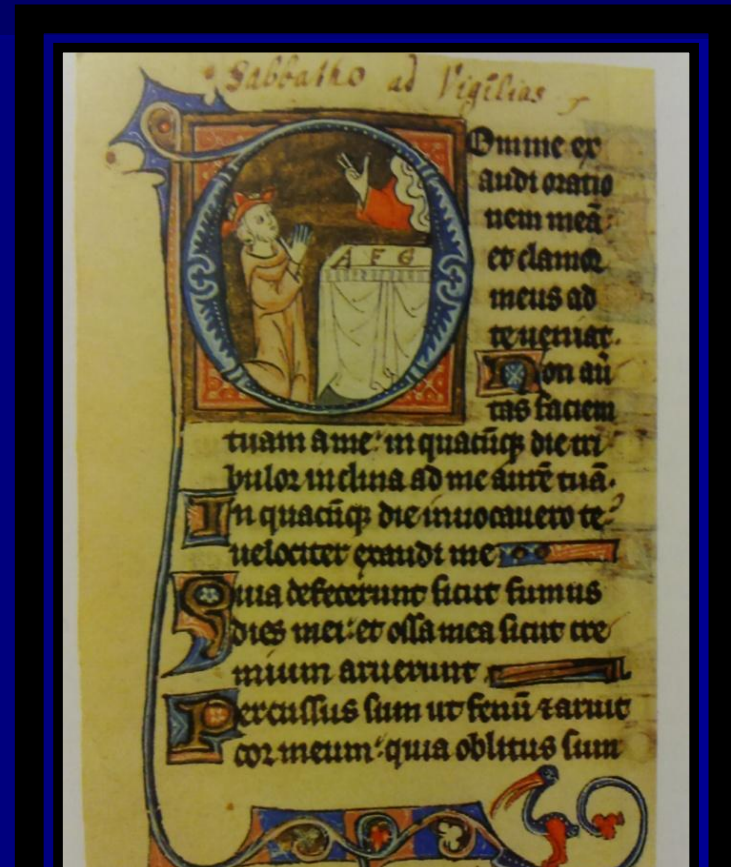 Sabbatho ad Vigilias
A F G
DOmine ex
audi oratio
nem meā
et clamor
meus ad
te ueniat.
Non aū
tas faciem
tuam a me: in quacūq; die tri
bulor inclina ad me aurē tuā.
In quacūq; die inuocauero te:
uelociter exaudi me
Quia defecerunt sicut fumus
dies mei: et ossa mea sicut cre
mium aruerunt
Percussus sum ut fenū ⁊ aruit
cor meum: quia oblitus sum